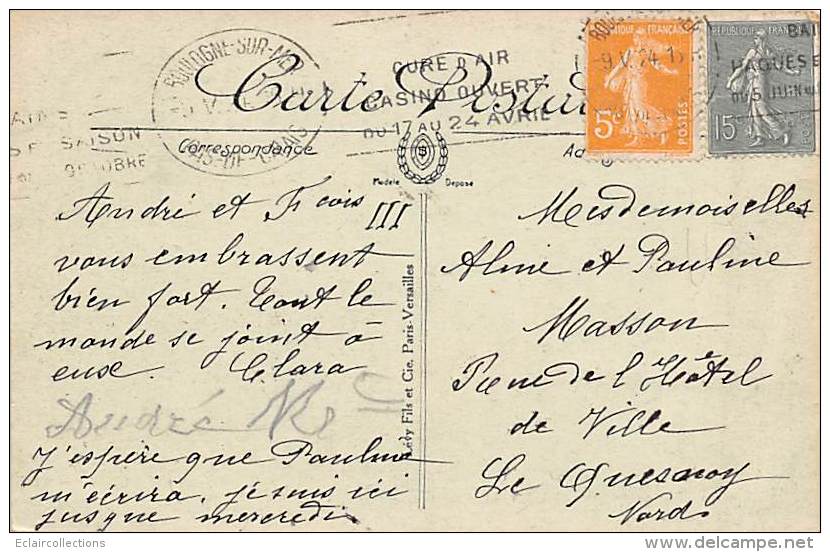 BOULOGNE-SUR-MER
PAS-DE-CALAIS
CURE D'AIR
CASINO OUVERT
DU 17 AU 24 AVRIL
SAISON
OCTOBRE
Carte Postale
Correspondance
Modèle Déposé
RÉPUBLIQUE FRANÇAISE
9 V 24
5c
POSTES
15c
5 JUIN
André et Fçois III
vous embrassent
bien fort. Tout le
monde se joint à
eux. Clara
André
J'espère que Pauline
m'écrira, je suis ici
jusque mercredi
Lévy Fils et Cie, Paris-Versailles
Mesdemoiselles
Aline et Pauline
Masson
Rue de l'Hôtel
de Ville
Le Quesnoy
Nord
Eclaircollections
delcampe.net